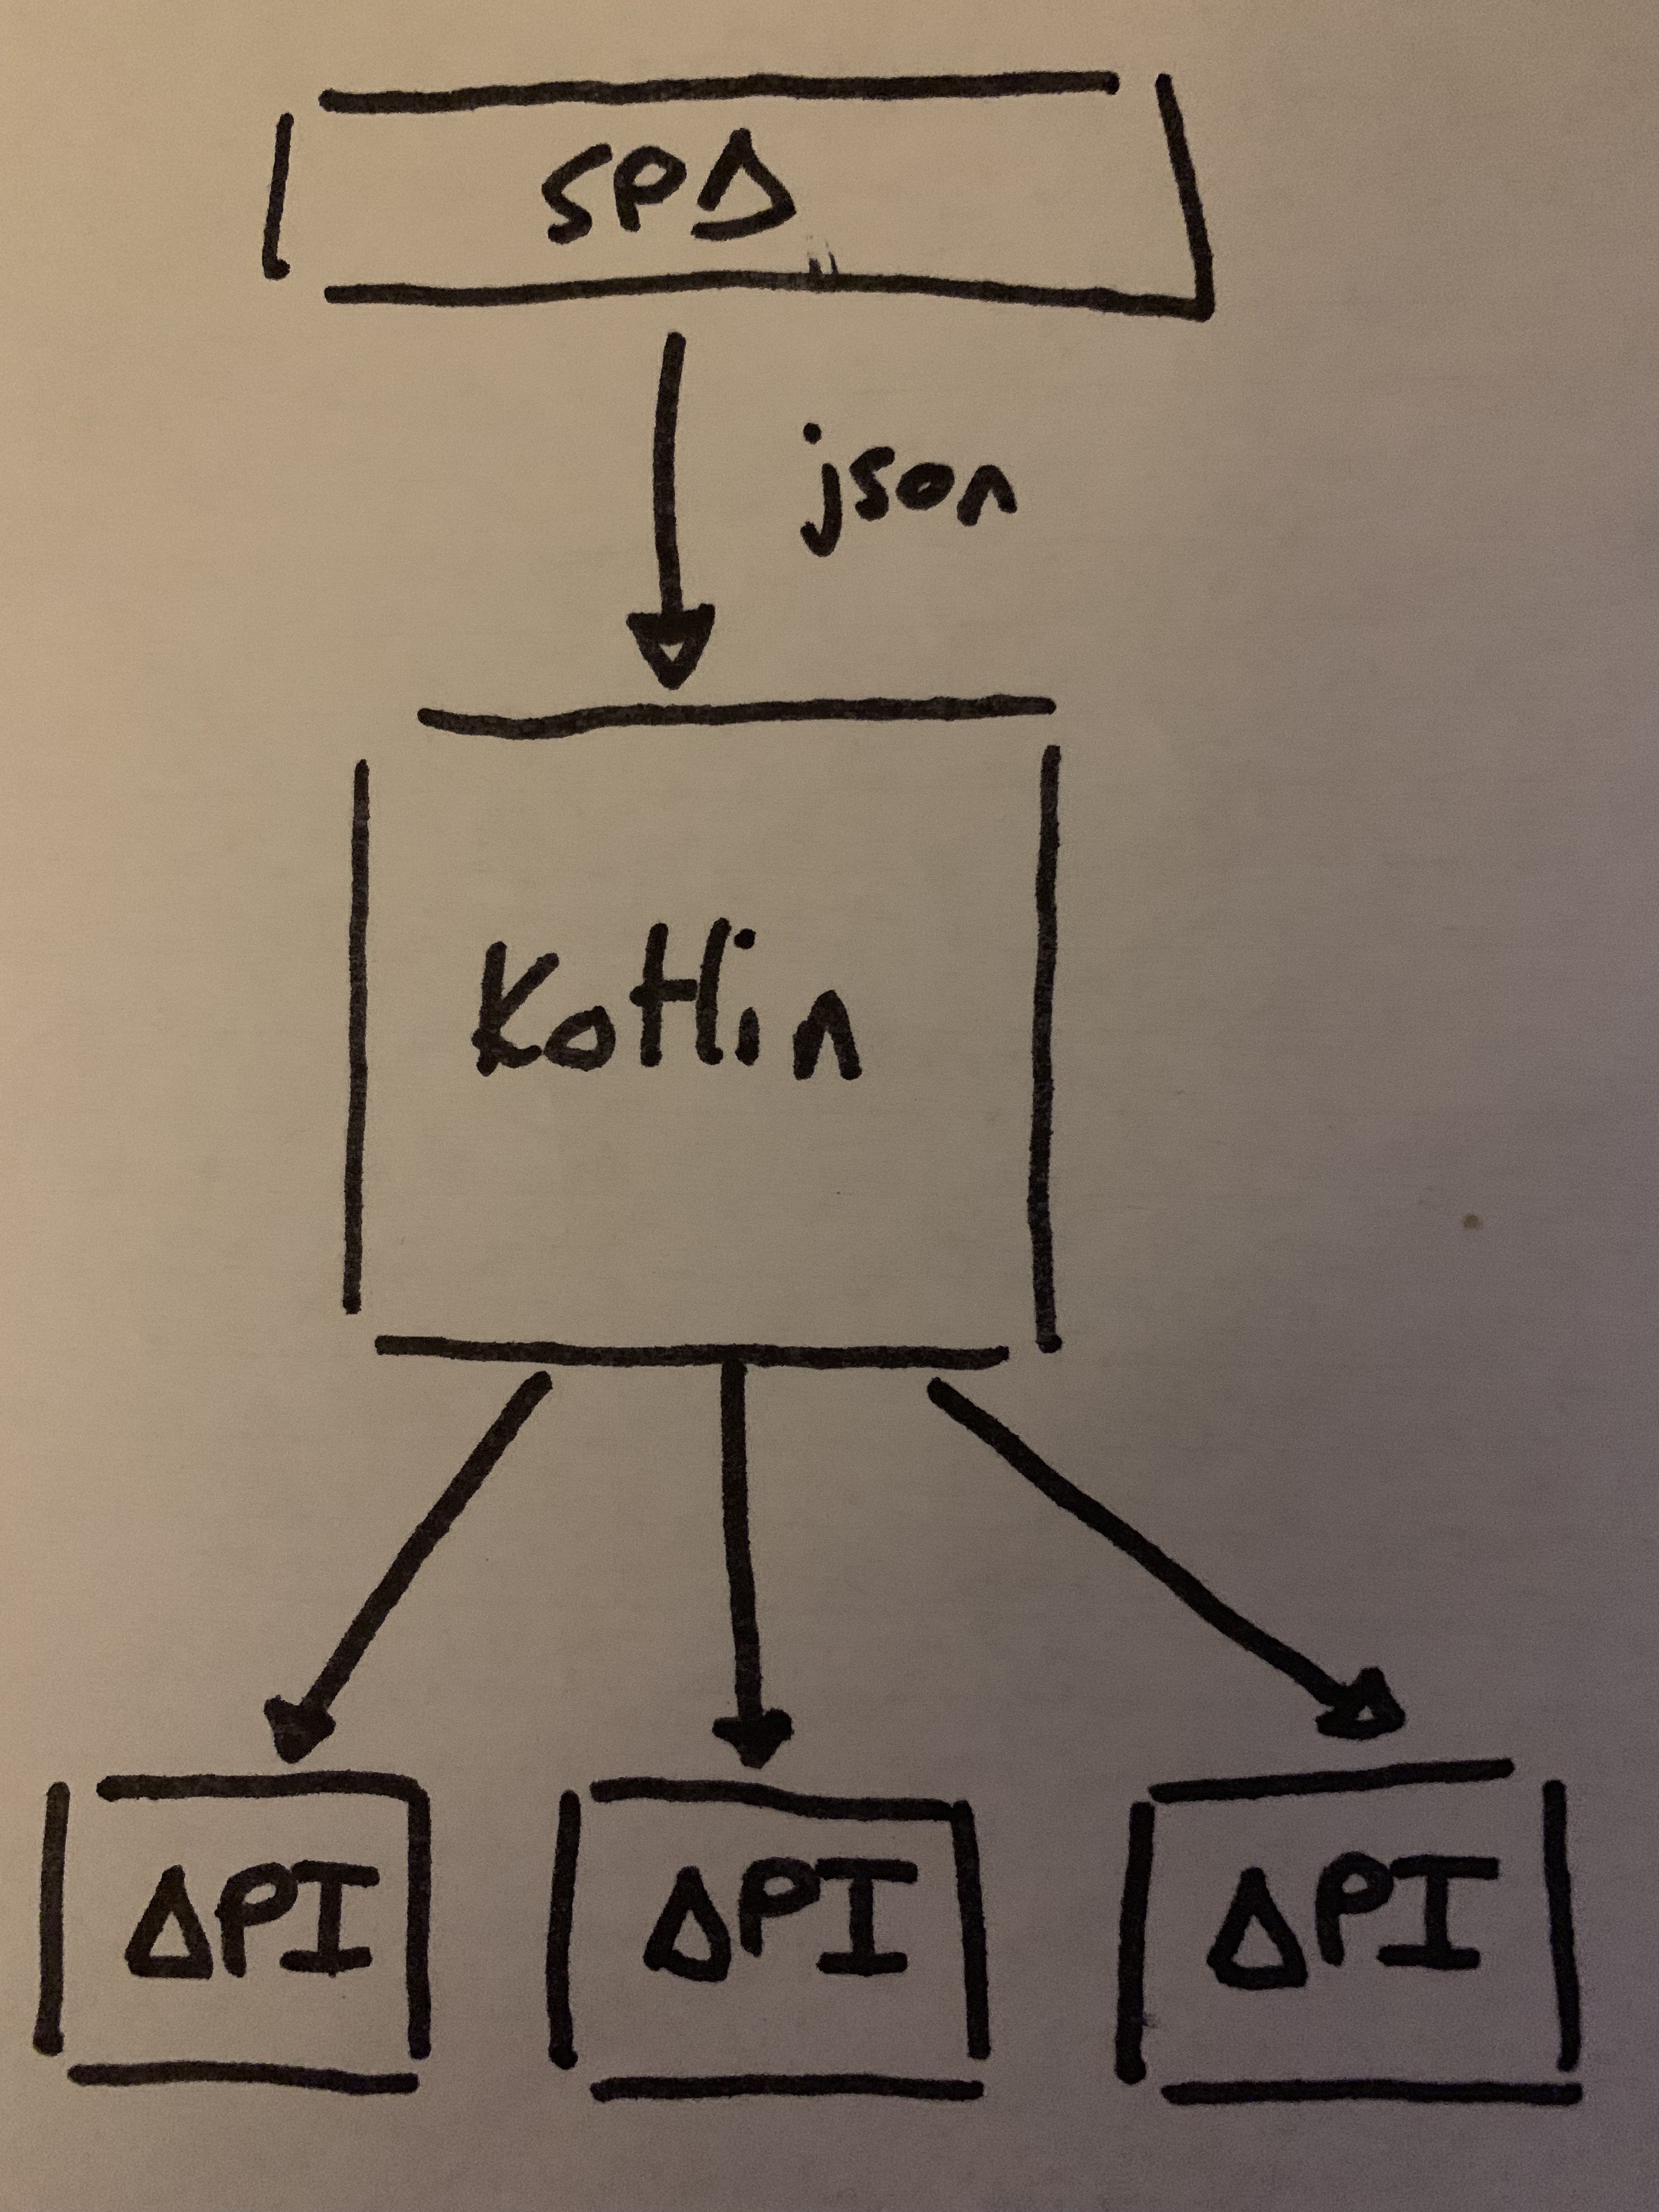 SPA
json
Kotlin
API API API